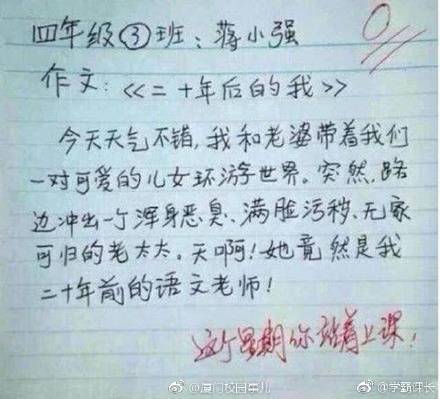 四年级③班：蒋小强
0
作文：《《二十年后的我》》
今天天气不错，我和老婆带着我们
一对可爱的儿女环游世界。突然，路
边冲出一个浑身恶臭、满脸污秽、无家
可归的老太太。天啊！她竟然是我
二十年前的语文老师！
这个星期你站着上课！
@厦门校园事儿
@学霸课长